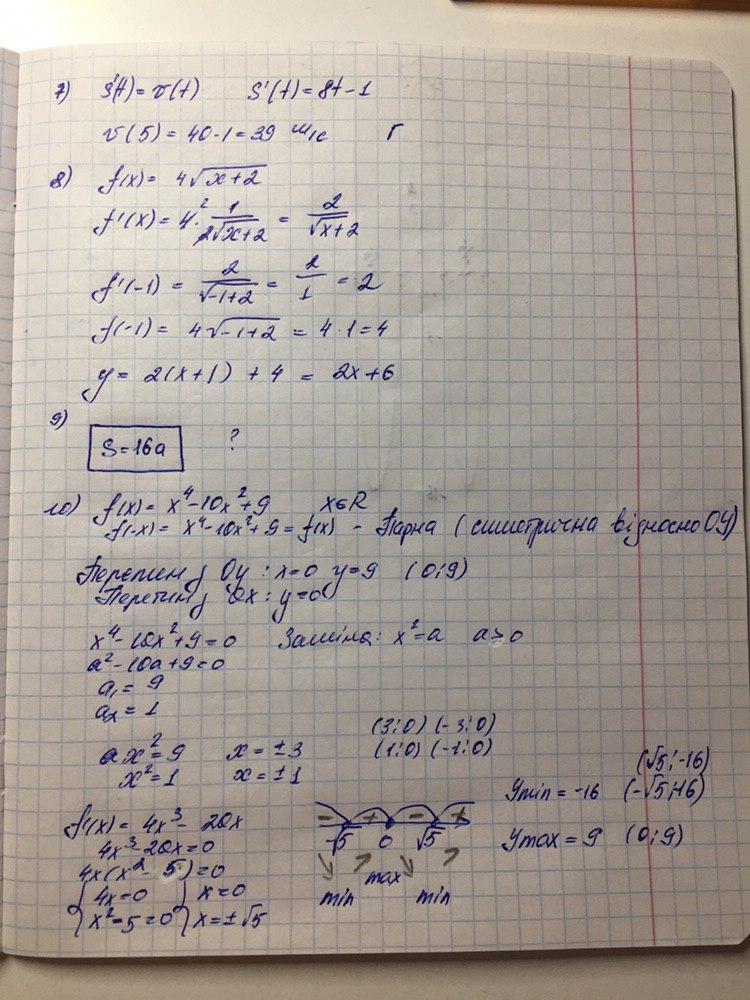 7) S'(t) = v(t) S'(t) = 8t - 1
v(5) = 40 - 1 = 39 м/с Г
8) f(x) = 4√(x+2)
f'(x) = 4 · 2 1/(2√(x+2)) = 2/√(x+2)
f'(-1) = 2/√(-1+2) = 2/1 = 2
f(-1) = 4√(-1+2) = 4 · 1 = 4
y = 2(x+1) + 4 = 2x+6
9)
S = 16a ?
10) f(x) = x⁴ - 10x² + 9 x∈R
f(-x) = x⁴ - 10x² + 9 = f(x) - Парна (симетрична відносно OY)
Перетин з Oy : x=0 y=9 (0;9)
Перетин з Ox : y=0
x⁴ - 10x² + 9 = 0 Заміна: x² = a a ≥ 0
a² - 10a + 9 = 0
a₁ = 9
a₂ = 1
(3;0) (-3;0)
x² = 9 x = ±3 (1;0) (-1;0)
x² = 1 x = ±1
(√5;-16)
Ymin = -16 (-√5;-16)
f'(x) = 4x³ - 20x - + - +
4x³ - 20x = 0 -√5 0 √5 Ymax = 9 (0;9)
4x(x² - 5) = 0 ↘ ↗ ↘ ↗
max
{4x = 0 {x = 0 min min
x² - 5 = 0 x = ±√5